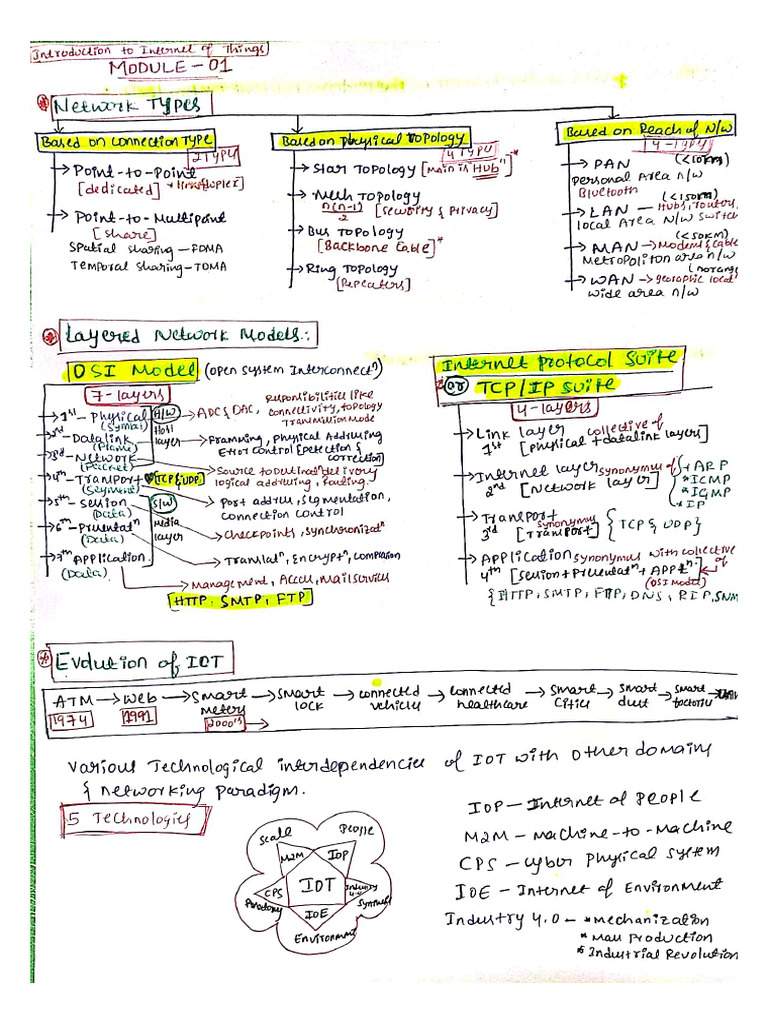 Introduction to Internet of Things
MODULE - 01
Network Types
Based on Connection Type
2 Type
Point-to-Point
[dedicated]
Point-to-Multipoint
[share]
Spatial sharing - FDMA
Temporal sharing - TDMA
Based on Physical Topology
4 Type
Star Topology [Main is Hub"]*
Mesh Topology
n(n-1)/2 [Security & Privacy]
Bus Topology
[Backbone Cable]*
Ring Topology
[Repeaters]
Based on Reach of N/W
4-Type
PAN (<10km)
Personal Area n/w
Bluetooth
(<150km)
LAN - Hubs, routers,
local Area N/W Switch
(<50km)
MAN → Modems & Cable
Metropoliton area n/w
WAN → geographic local
wide area n/w
Layered Network Models:
OSI Model (open system Interconnectn)
7-layers
1st - Physical
(Symbol)
2nd - Datalink
(Frame)
3rd - Network
(Packet)
4th - Transport TCP & UDP
(Segment)
5th - Session
(Data)
6th - Presentatn
(Data)
7th Application
(Data)
H/W
layer
S/W
media
layer
ADC & DAC, Responsibilities like
connectivity, topology
Transmission Mode
Framing, Physical Addressing
Error Control [Detection &
correction]
Source to Destinatn delivery
logical addressing, Routing.
Port address, Segmentation,
Connection Control
Checkpoints, synchronizatn
Translatn, Encryptn, compression
Management, Access, Mail services
[HTTP, SMTP, FTP]
Internet Protocol Suite
or TCP/IP SUITE
4-layers
Link layer collective of
1st [physical + datalink layers]
Internet layer synonymus of
2nd [Network layer]
* ARP
* ICMP
* IGMP
* IP
Transport synonymus
3rd [Transport] {TCP & UDP}
Application synonymus with collective
4th [session + Presentatn + Appltn] of
(OSI Model)
{HTTP, SMTP, FTP, DNS, RIP, SNM
Evolution of IOT
ATM → Web → Smart meters → Smart lock → connected vehicles → connected healthcare → Smart Cities → Smart dust → Smart factories →
1974 1991 2000's
Various Technological interdependencies of IOT with other domains
& networking Paradigm.
5 Technologies
Scale
People
M2M
IOP
IOT
CPS
Industry 4.0
IOE
Environment
IOP - Internet of People
M2M - Machine-to-Machine
CPS - Cyber Physical System
IOE - Internet of Environment
Industry 4.0 - * Mechanization
* Mass Production
* Industrial Revolution